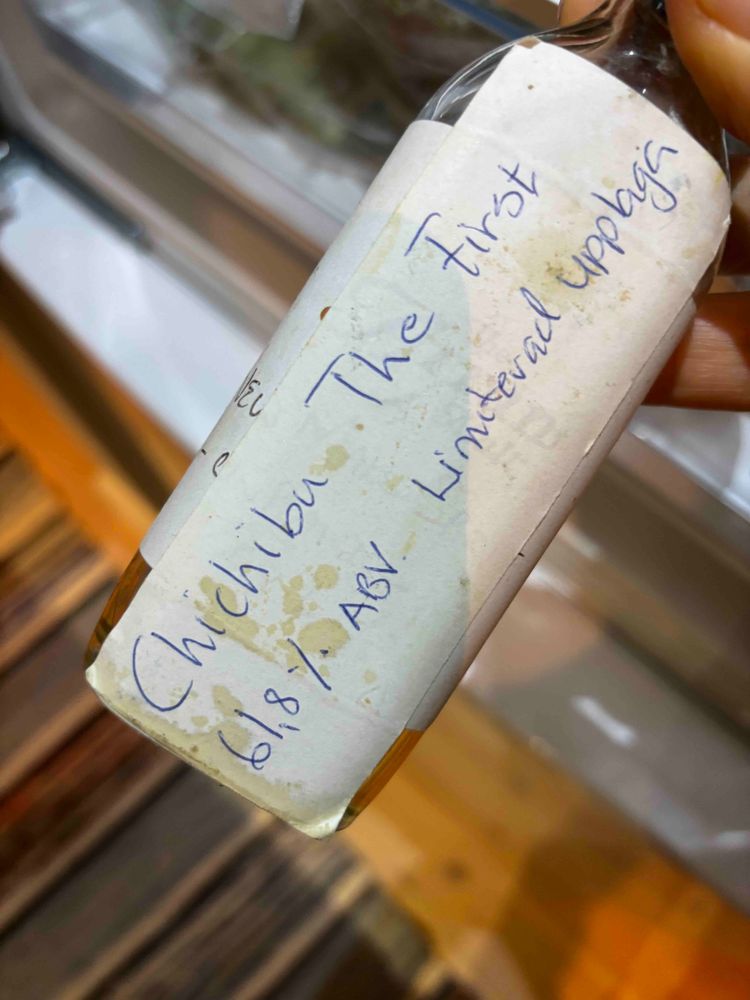 Chichibu The First
61,8 % ABV. Limiterad upplaga